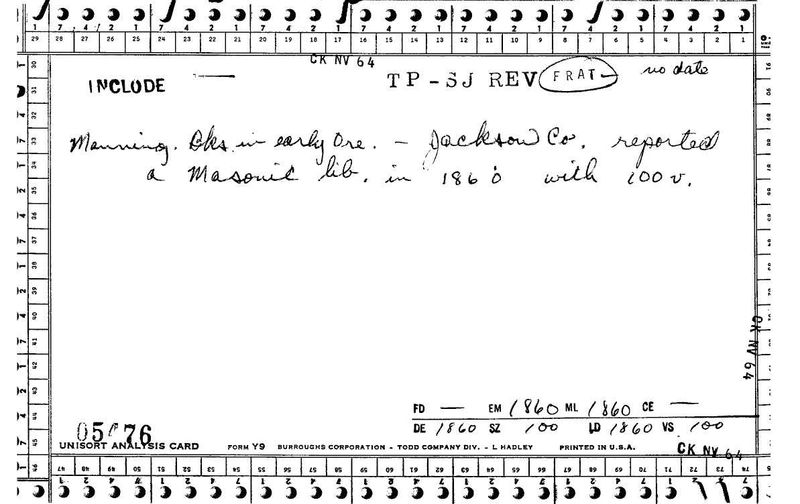 7 4 2 1 7 4 2 1 7 4 2 1 7 4 2 1 7 4 2 1 7 4 2 1 7 4 2 1
29 28 27 26 25 24 23 22 21 20 19 18 17 16 15 14 13 12 11 10 9 8 7 6 5 4 3 2 1
CK NV 64
INCLUDE — TP-SJ REV FRAT— no date
Manning. Bks. in early Ore. — Jackson Co. reported
a Masonic lib. in 1860 with 100 v.
30 31 32 33 34 35 36 37 38 39 40 41 42 43 44 45 46
CK NV 64
FD — EM 1860 ML 1860 CE —
DE 1860 SZ 100 LD 1860 VS 100
05 76
UNISORT ANALYSIS CARD FORM Y9 BURROUGHS CORPORATION - TODD COMPANY DIV. - L HADLEY PRINTED IN U.S.A.
CK NV 64
47 48 49 50 51 52 53 54 55 56 57 58 59 60 61 62 63 64 65 66 67 68 69 70 71 72 73 74